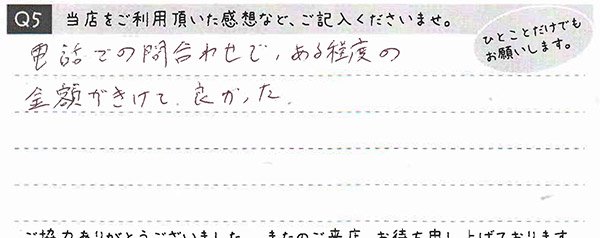 Q5 当店をご利用頂いた感想など、ご記入くださいませ。
ひとことだけでも
お願いします。
電話での問合わせで、ある程度の
金額がきけて、良かった。
ご協力ありがとうございました。またのご来店、お待ち申し上げております